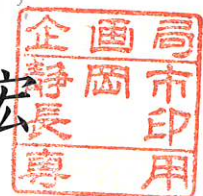 宏
企画局
静岡市
長印
専用